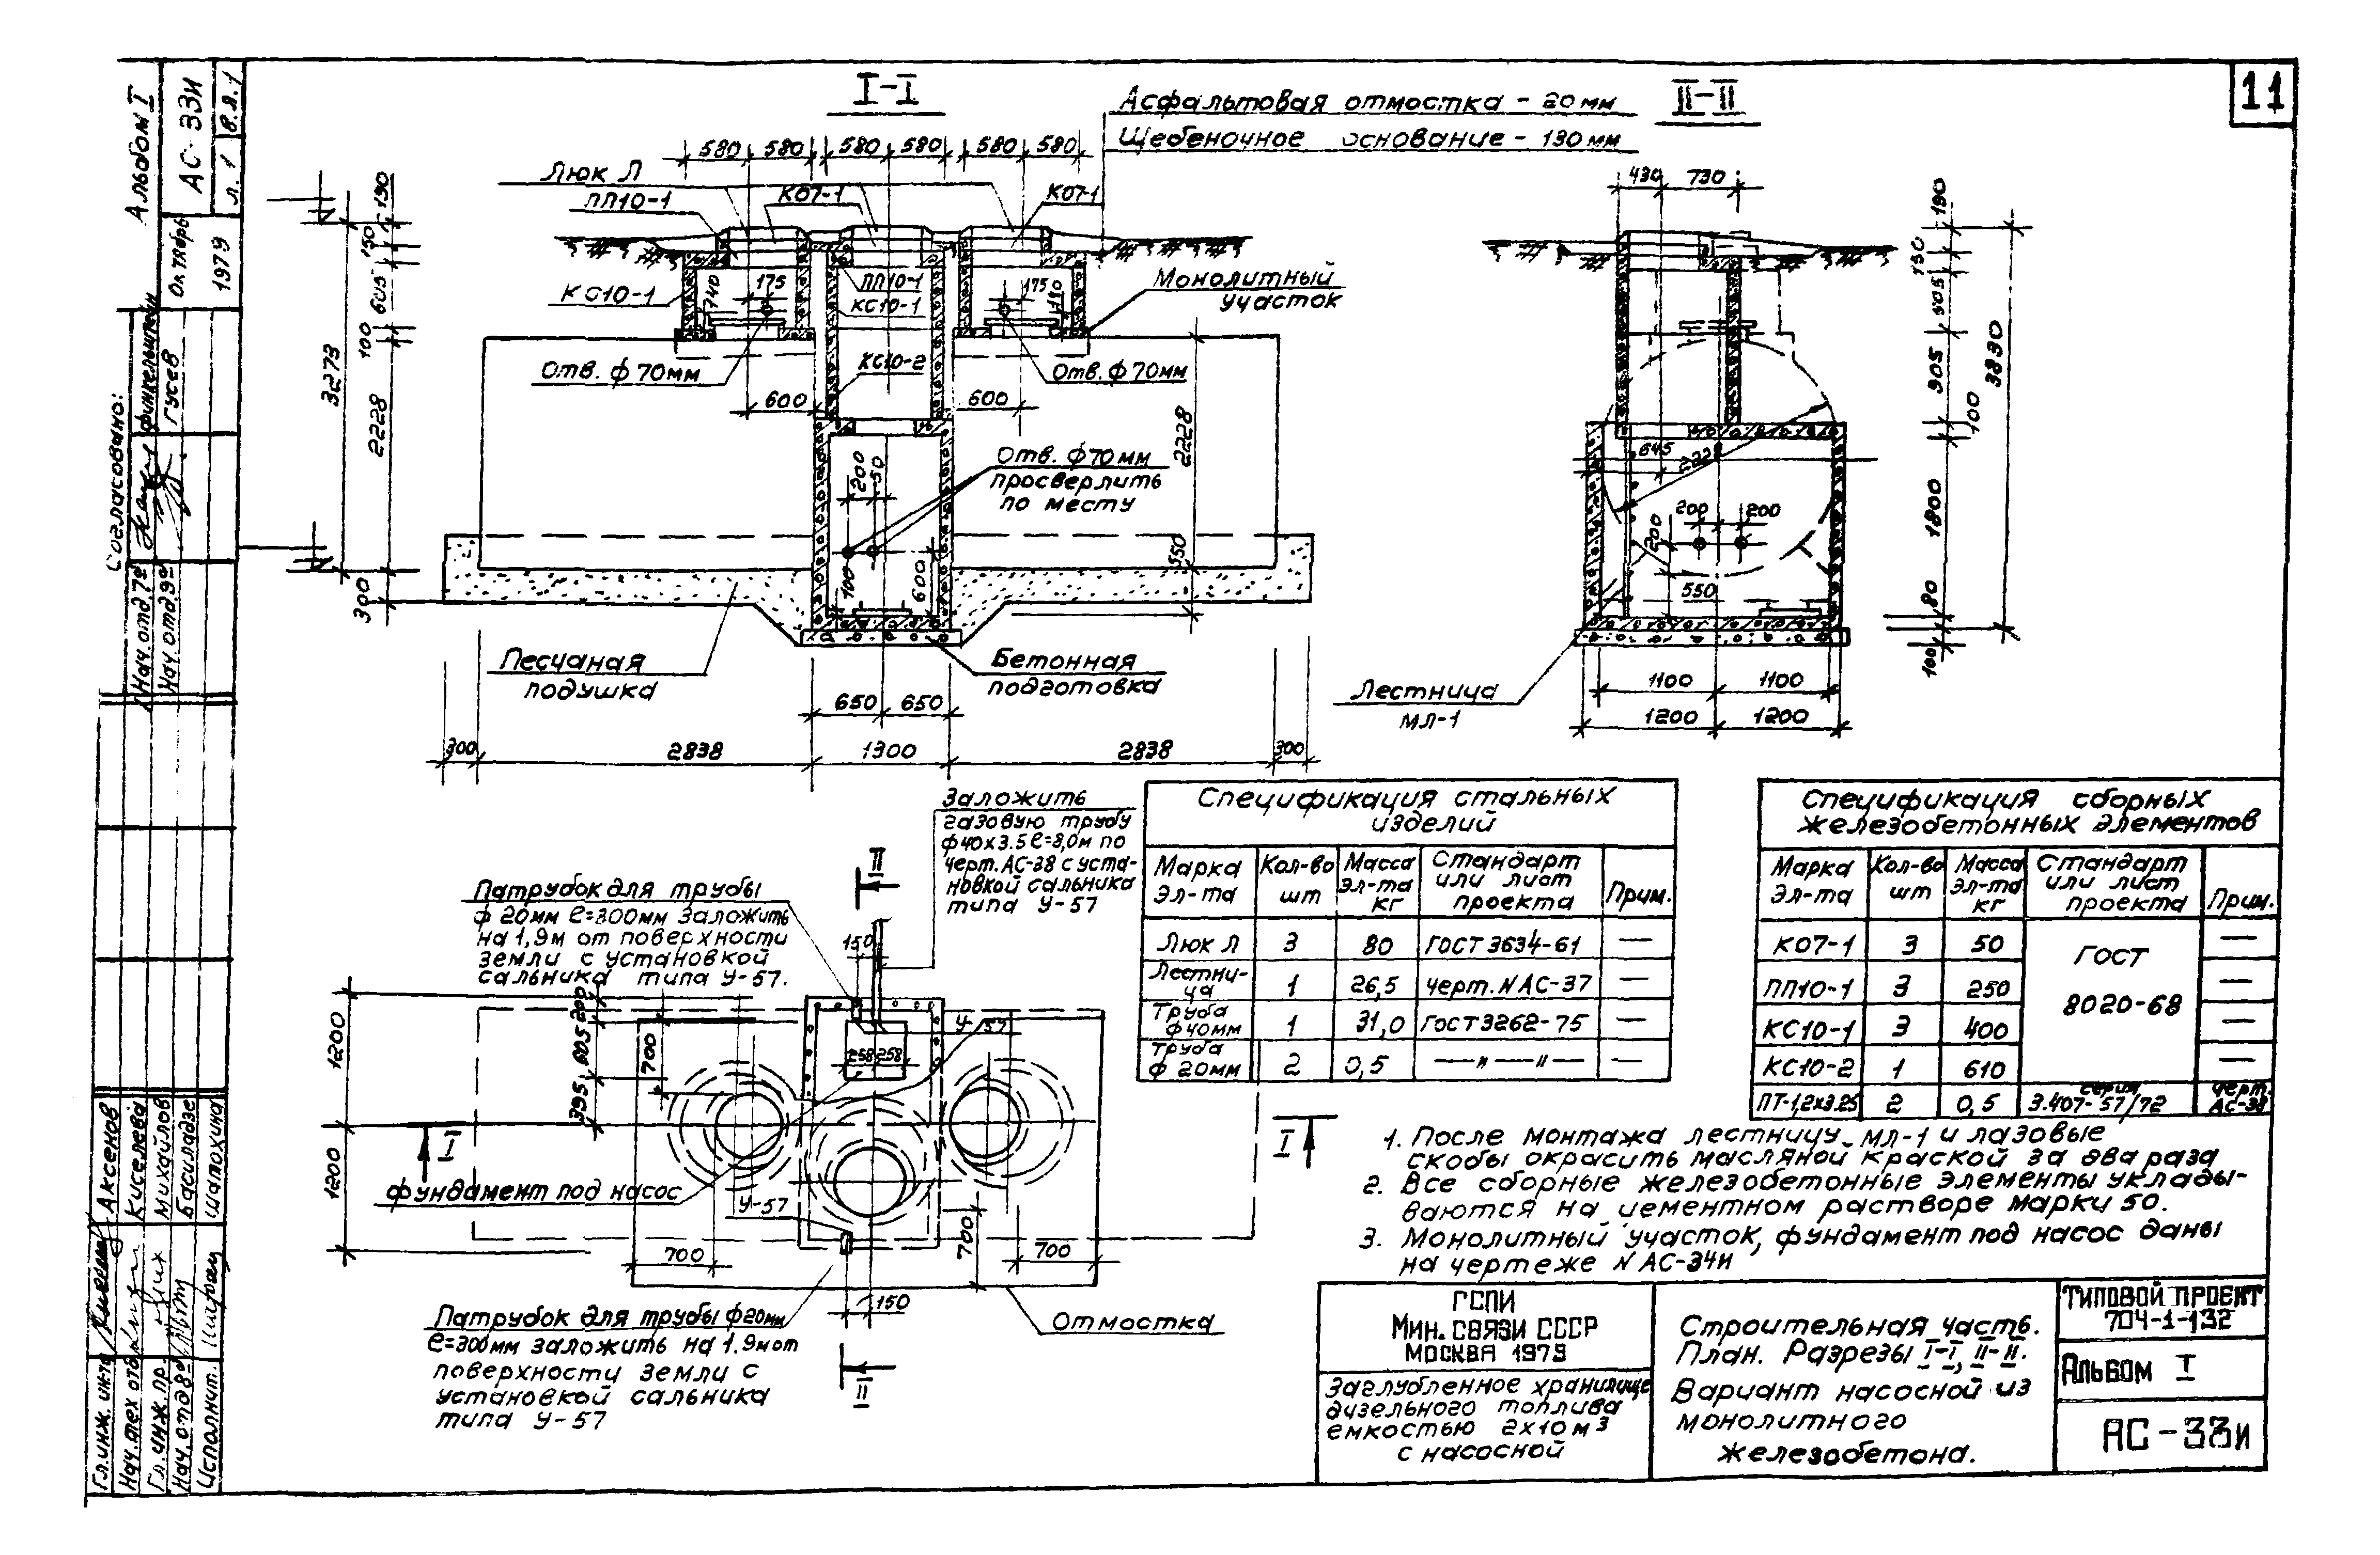 11
Альбом I
АС-33и
л. 1
в.л.1
Октябрь
1979
Согласовано:
Финкельштейн
Гусев
Нач.отд.7²
Нач.отд.9²
I-I
Асфальтовая отмостка - 20 мм
Щебеночное основание - 130 мм
II-II
580 580 580 580 580 580
Люк Л
ПП10-1
К07-1
К07-1
КС10-1
740
175
ПП10-1
КС10-1
175
Монолитный
участок
Отв. ф 70мм
КС10-2
Отв. ф 70мм
600
600
3273
190
150
605
100
2228
300
Отв. ф 70мм
просверлить
по месту
200
50
100
600
2228
550
Песчаная
подушка
Бетонная
подготовка
650 650
300 2838 1300 2838 300
430 730
190
150
505
905
100
3830
1800
80
100
645
2228
200 200
200
550
Лестница
МЛ-1
1100 1100
1200 1200
Заложить
газовую трубу
ф40х3.5 ℓ=8,0м по
черт. АС-38 с уста-
новкой сальника
типа У-57
II
Патрубок для трубы
ф 20мм ℓ=300мм заложить
на 1,9м от поверхности
земли с установкой
сальника типа У-57.
150
У-57
200
605
395
700
1200
1200
258 258
I
I
фундамент под насос
У-57
700
700
700
150
Отмостка
Патрубок для трубы ф20мм
ℓ=300мм заложить на 1.9м от
поверхности земли с
установкой сальника
типа У-57
II
Спецификация стальных
изделий
Марка эл-та Кол-во шт Масса эл-та кг Стандарт или лист проекта Прим.
Люк Л 3 80 ГОСТ 3634-61 —
Лестница 1 26,5 черт. N АС-37 —
Труба ф 40мм 1 31,0 ГОСТ 3262-75 —
Труба ф 20мм 2 0,5 —"—"— —
Спецификация сборных
железобетонных элементов
Марка эл-та Кол-во шт Масса эл-та кг Стандарт или лист проекта Прим.
К07-1 3 50 ГОСТ 8020-68 —
ПП10-1 3 250 —
КС10-1 3 400 —
КС10-2 1 610 —
ПТ-1,2х3.25 2 0,5 серия 3.407-57/72 черт. АС-38
1. После монтажа лестницу МЛ-1 и лазовые
скобы окрасить масляной краской за два раза
2. Все сборные железобетонные элементы уклады-
ваются на цементном растворе марки 50.
3. Монолитный участок, фундамент под насос даны
на чертеже N АС-34и
ГСПИ
Мин. связи СССР
Москва 1979
Заглубленное хранилище
дизельного топлива
емкостью 2х10 м³
с насосной
Строительная часть.
План. Разрезы I-I, II-II.
Вариант насосной из
монолитного
железобетона.
Типовой проект
704-1-132
Альбом I
АС-33и
Гл. инж. инта Аксенов
Нач.отд Киселева
Гл. инж. пр. Михайлов
Нач.отд Басиладзе
Исполнит. Шапохина